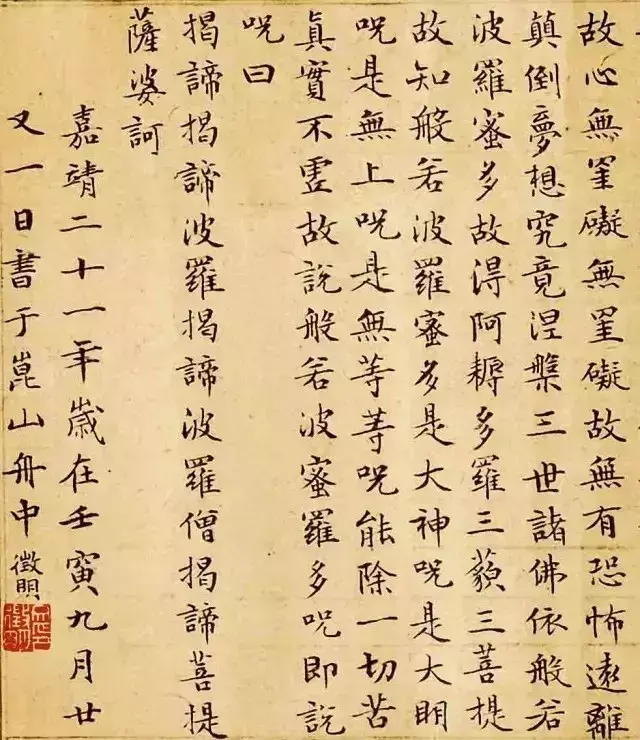 故心無罣礙無罣礙故無有恐怖遠離
顛倒夢想究竟涅槃三世諸佛依般若
波羅蜜多故得阿耨多羅三藐三菩提
故知般若波羅蜜多是大神呪是大明
呪是無上呪是無等等呪能除一切苦
真實不虛故說般若波蜜羅多呪即說
呪曰
揭諦揭諦波羅揭諦波羅僧揭諦菩提
薩婆訶
嘉靖二十一年歲在壬寅九月廿
又一日書于崑山舟中徵明